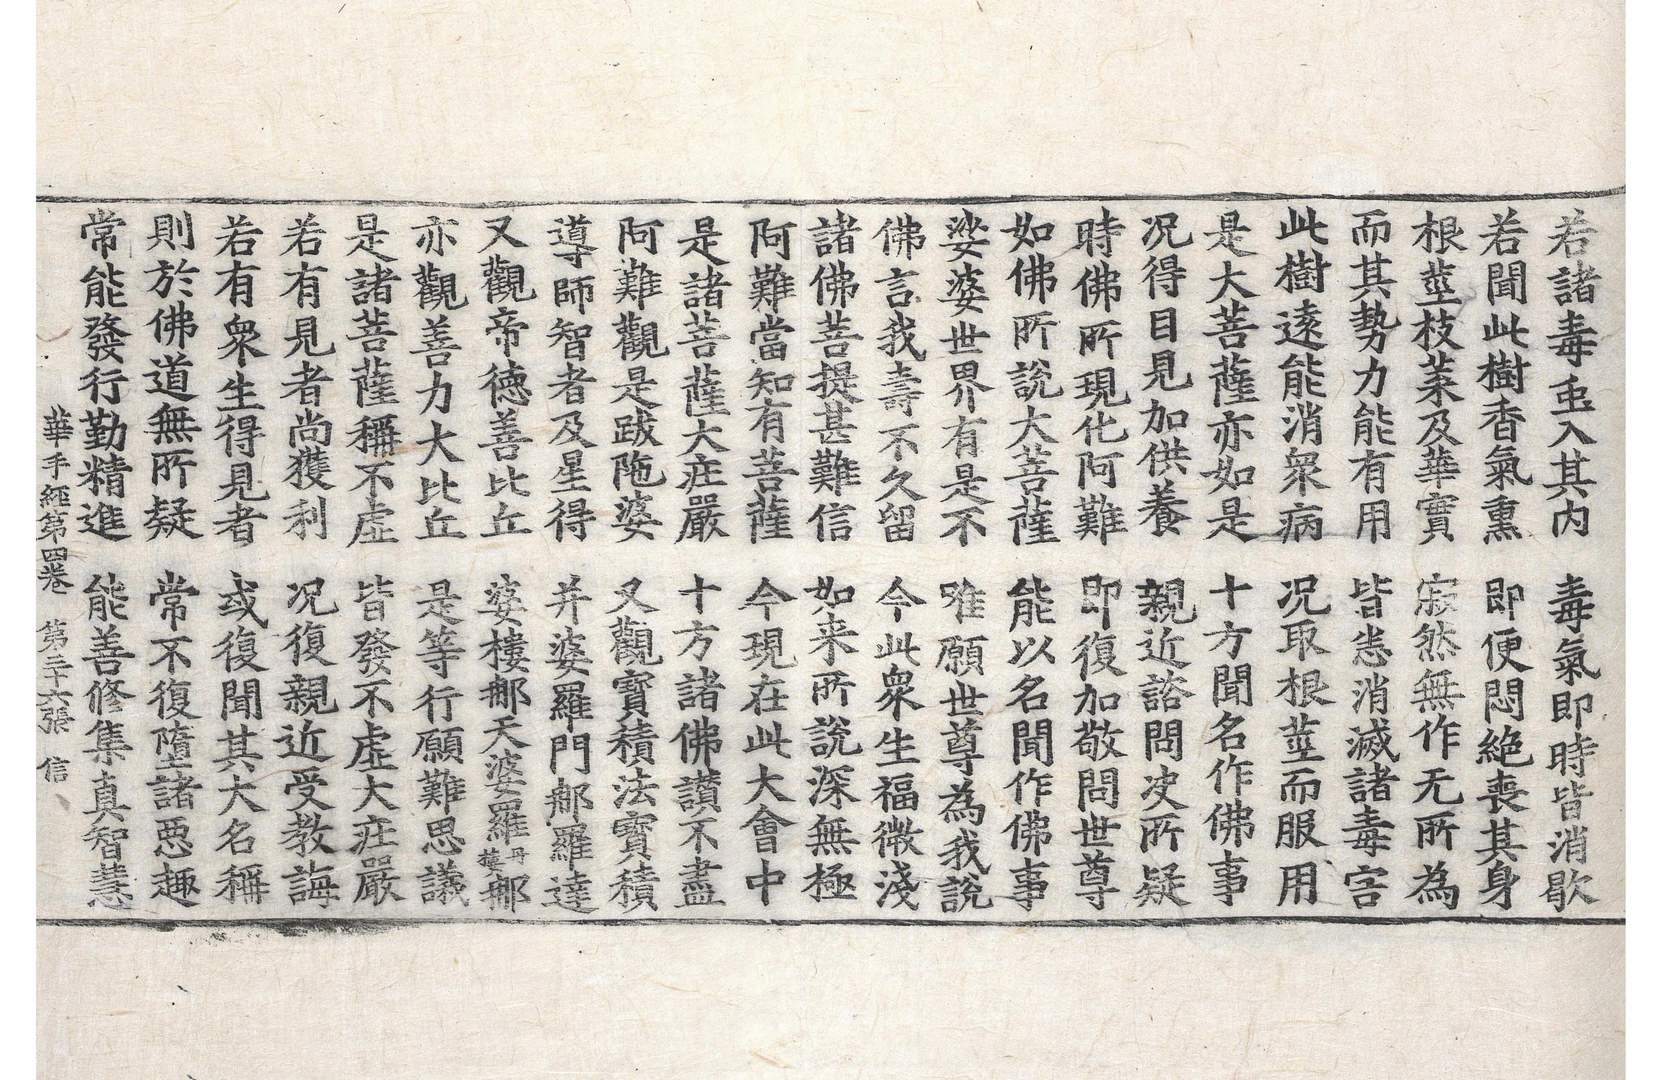 若諸毒虫入其內　毒氣即時皆消歇
若聞此樹香氣熏　即便悶絕喪其身
根莖枝葉及華實　寂然無作无所為
而其勢力能有用　皆悉消滅諸毒害
此樹遠能消衆病　况取根莖而服用
是大菩薩亦如是　十方聞名作佛事
况得目見加供養　親近諮問决所疑
時佛所現化阿難　即復加敬問世尊
如佛所說大菩薩　能以名聞作佛事
娑婆世界有是不　唯願世尊為我說
佛言我壽不久留　今此衆生福微淺
諸佛菩提甚難信　如来所說深無極
阿難當知有菩薩　今現在此大會中
是諸菩薩大庄嚴　十方諸佛讃不盡
阿難觀是跋陁婆　又觀寶積法寶積
導師智者及星得　并婆羅門郍羅達
又觀帝德善比丘　婆樓郍天婆羅丹婆郍
亦觀善力大比丘　是等行願難思議
是諸菩薩稱不虛　皆發不虛大庄嚴
若有見者尚獲利　况復親近受教誨
若有衆生得見者　或復聞其大名稱
則於佛道無所疑　常不復墮諸惡趣
常能發行勤精進　能善修集真智慧
華手經第四卷　第三十六張　信